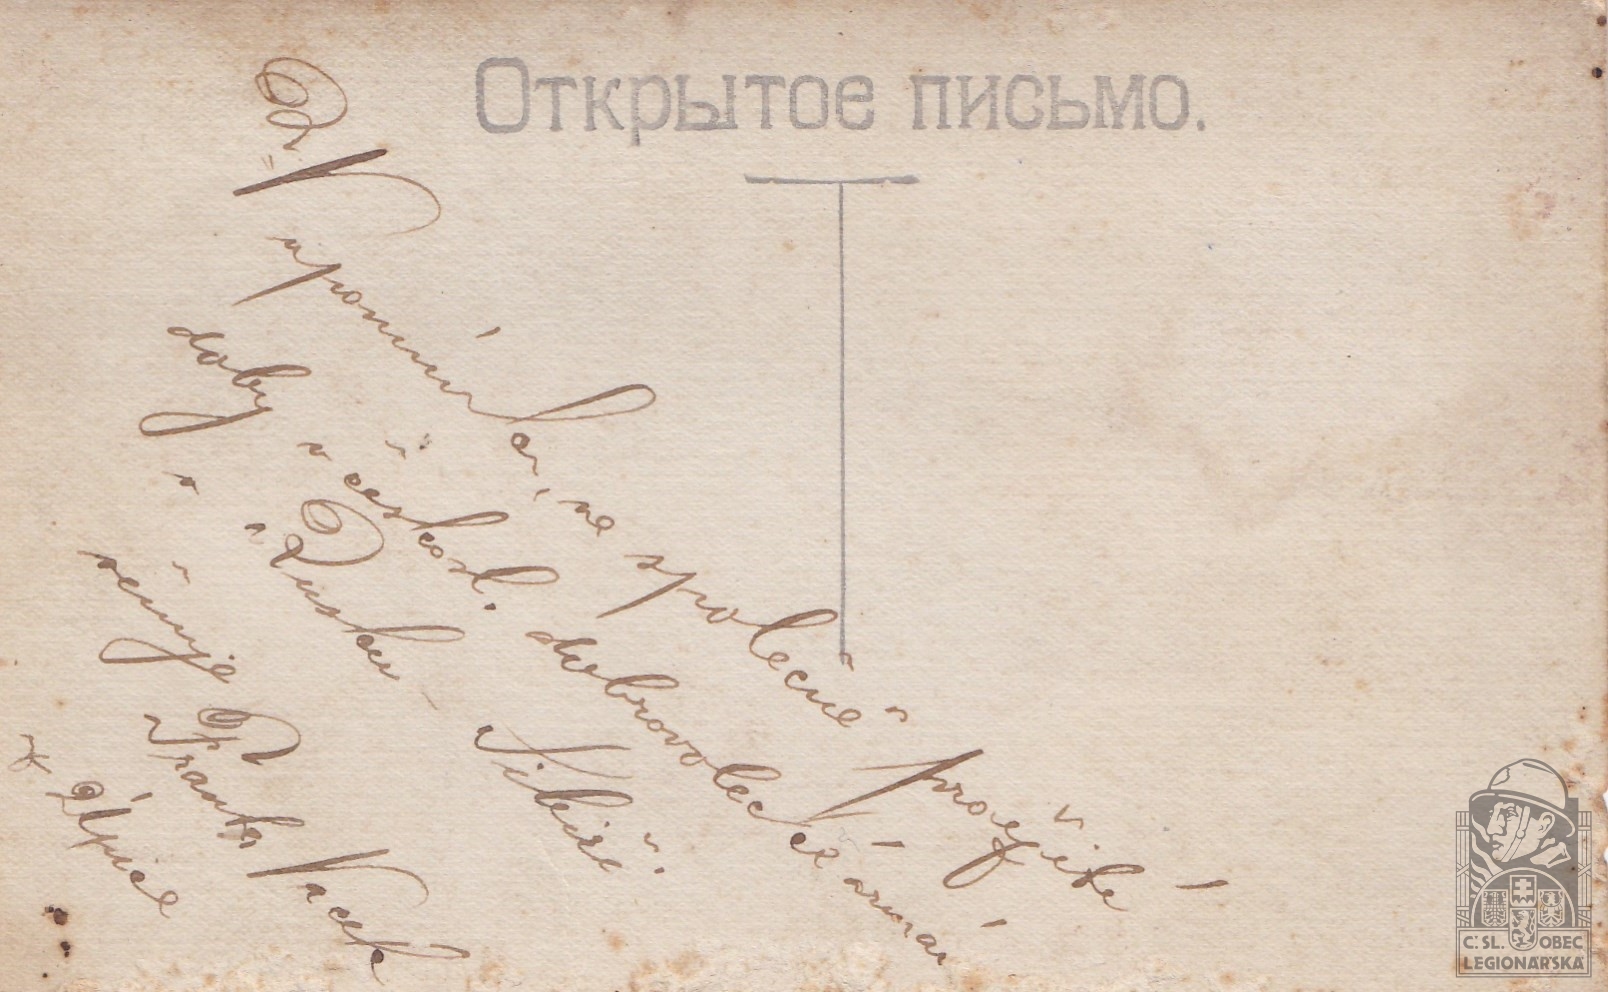 Открытое письмо.
Vzpomínka, na společně prožité
doby v česko sl. dobrovolecké armádě
v Rusku - Sibiři.
věnuje Frank Vacek
z Úpice
Č. SL. OBEC
LEGIONÁŘSKÁ